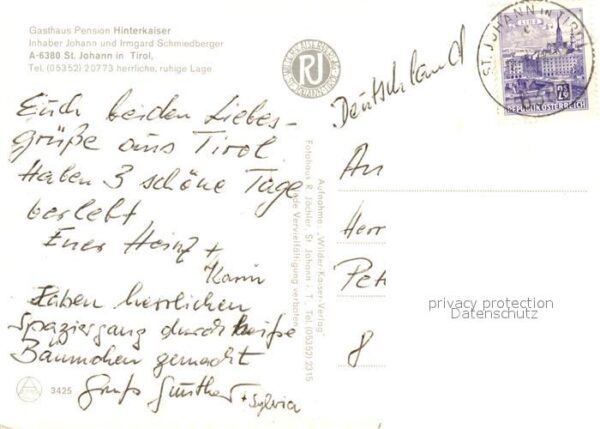 Gasthaus Pension Hinterkaiser
Inhaber Johann und Irmgard Schmiedberger
A-6380 St. Johann in Tirol,
Tel. (05352) 20773 herrliche, ruhige Lage
RJ
ST. JOHANN in TIROL
LINZ
2.50
REPUBLIK ÖSTERREICH
Deutschland
Euch beiden Liebes-
grüße aus Tirol
Haben 3 schöne Tage
verlebt
Euer Heinz +
Karin
Haben herrlichen
Spaziergang durch
Bäumchen gemacht
Gruß Günther + Sylvia
3425
Aufnahme: "Wilder/Kaiser-Verlag"
Fotohaus R. Jöchler, St. Johann i. T., Tel. (05352) 2315
Jede Vervielfältigung verboten.
An
Herr
Pet
8
privacy protection
Datenschutz